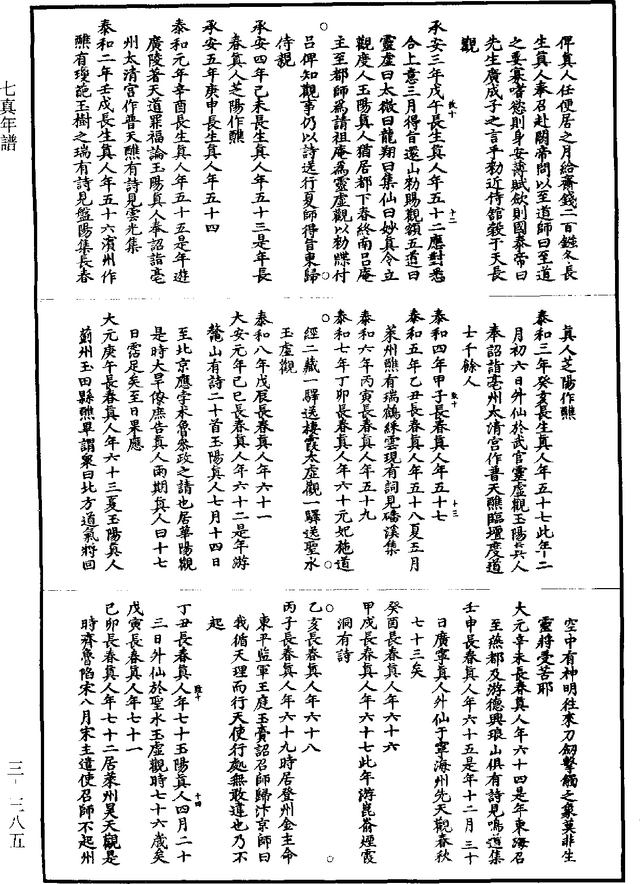 七真年譜
三-三八五
俾真人任便居之月給齋錢二百鏹冬長
生真人奉召赴闕帝問以至道師曰至道
之要寡嗜慾則身安薄賦歛則國泰帝曰
先生廣成子之言乎勑近侍舘穀于天長
觀
承安三年戊午長生真人年五十二應對悉
合上意三月得旨還山勑賜觀額五道曰
靈虛曰太微曰龍翔曰集仙曰妙真令立
觀度人玉陽真人猶居都下春終南呂庵
主至都師為請祖庵為靈虛觀以勑牒付
呂俾知觀事仍以詩送行夏師得旨東歸
侍親
承安四年己未長生真人年五十三是年長
春真人芝陽作醮
承安五年庚申長生真人年五十四
泰和元年辛酉長生真人年五十五是年遊
廣陵著天道罪福論玉陽真人奉詔詣亳
州太清宮作普天醮有詩見雲光集
泰和二年壬戌長生真人年五十六濱州作
醮有瓊葩玉樹之瑞有詩見盤陽集長春
真人芝陽作醮
泰和三年癸亥長生真人年五十七此年二
月初六日外仙於武官靈虛觀玉陽真人
奉詔詣亳州太清宮作普天醮臨壇度道
士千餘人
泰和四年甲子長春真人年五十七
泰和五年乙丑長春真人年五十八夏五月
萊州醮有瑞鶴綵雲現有詞見磻溪集
泰和六年丙寅長春真人年五十九
泰和七年丁卯長春真人年六十元妃施道
經二藏一驛送棲霞太虛觀一驛送聖水
玉虛觀
泰和八年戊辰長春真人年六十一
大安元年己巳長春真人年六十二是年游
鼇山有詩二十首玉陽真人七月十四日
至北京應孛朮魯參政之請也居華陽觀
是時大旱僚庶告真人雨期真人曰十七
日霑足矣至日果應
大元庚午長春真人年六十三夏玉陽真人
薊州玉田縣醮畢謂衆曰北方道氣將回
空中有神明往來刀劒擊觸之象莫非生
靈將受苦耶
大元辛未長春真人年六十四是年東海召
至燕都及游德興琅山俱有詩見鳴道集
壬申長春真人年六十五是年十二月三十
日廣寧真人外仙于寧海州先天觀春秋
七十三矣
癸酉長春真人年六十六
甲戌長春真人年六十七此年游崑崙煙霞
洞有詩
乙亥長春真人年六十八
丙子長春真人年六十九時居登州金主命
東平監軍王庭玉賫詔召師歸汴京師曰
我循天理而行天使行處無敢違也乃不
起
丁丑長春真人年七十玉陽真人四月二十
三日外仙於聖水玉虛觀時七十六歲矣
戊寅長春真人年七十一
己卯長春真人年七十二居萊州昊天觀是
時齊魯陷宋八月宋主遣使召師不起州